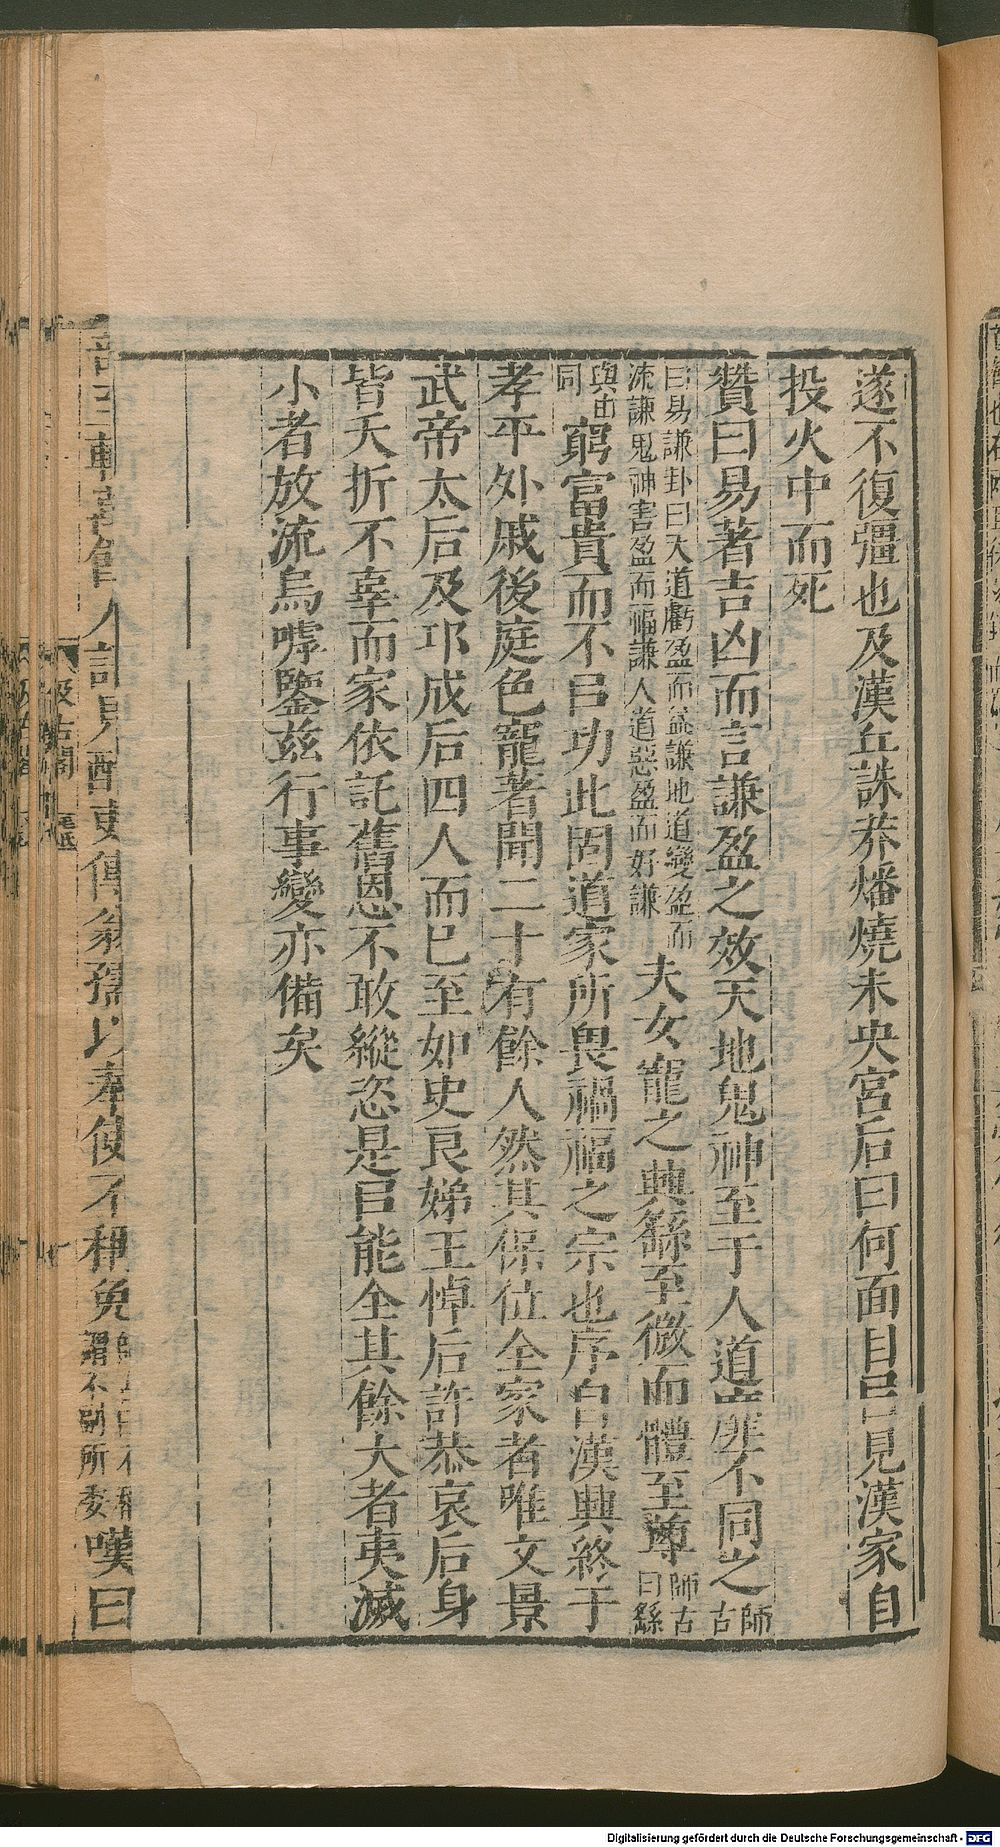 遂不復彊也及漢兵誅莽燔燒未央宮后曰何面目㠯見漢家自
投火中而死
贊曰易著吉凶而言謙盈之效天地鬼神至于人道靡不同之師古
曰易謙卦曰天道虧盈而益謙地道變盈而
流謙鬼神害盈而福謙人道惡盈而好謙
夫女寵之興繇至微而體至尊師古曰繇
與由同
窮富貴而不㠯功此固道家所畏禍福之宗也序自漢興終于
孝平外戚後庭色寵著聞二十有餘人然其保位全家者唯文景
武帝太后及邛成后四人而已至如史良娣王悼后許恭哀后身
皆夭折不辜而家依託舊恩不敢縱恣是㠯能全其餘大者夷滅
小者放流烏嘑鑒茲行事變亦備矣
汲古閣
毛氏
傳翁孺以奉使不稱免
謂不副所委
嘆曰
Digitalisierung gefördert durch die Deutsche Forschungsgemeinschaft - DFG